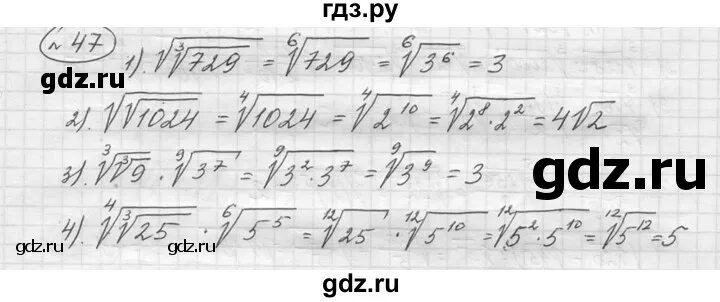 гдз.ру
№ 47
1). √∛729 = ⁶√729 = ⁶√3⁶ = 3
gdz.ru
gdz.ru
2). √√1024 = ⁴√1024 = ⁴√2¹⁰ = ⁴√2⁸·2² = 4√2
3). ∛∛9 · ⁹√3⁷ = ⁹√3²·3⁷ = ⁹√3⁹ = 3
gdz.ru
4). ⁴√∛25 · ⁶√5⁵ = ¹²√25 · ¹²√5¹⁰ = ¹²√5²·5¹⁰ = ¹²√5¹² = 5
gdz.ru
gdz.ru
gdz.ru